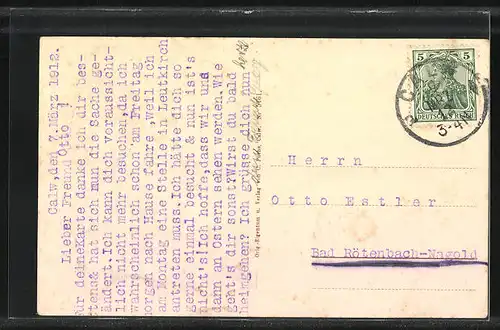 Calw, den 7.März 1912.
Lieber Freund Otto !
Für deine Karte danke ich dir bes-
tens & hat sich nun die Sache ge-
ändert. Ich kann dich voraussicht-
lich nicht mehr besuchen, da ich
wahrscheinlich schon am Freitag
morgen nach Hause fahre, weil ich
am Montag eine Stelle in Leutkirch
antreten muss. Ich hätte dich so
gerne einmal besucht & nun ist's
nicht's! Ich hoffe, dass wir uns
dann an Ostern sehen werden. Wie
geht's dir sonst? Wirst du bald
heimgehen? Ich grüsse dich hun
herzl
5 5
DEUTSCHES REICH
3-4
Herrn
Otto Estler
Bad Rötenbach-Nagold